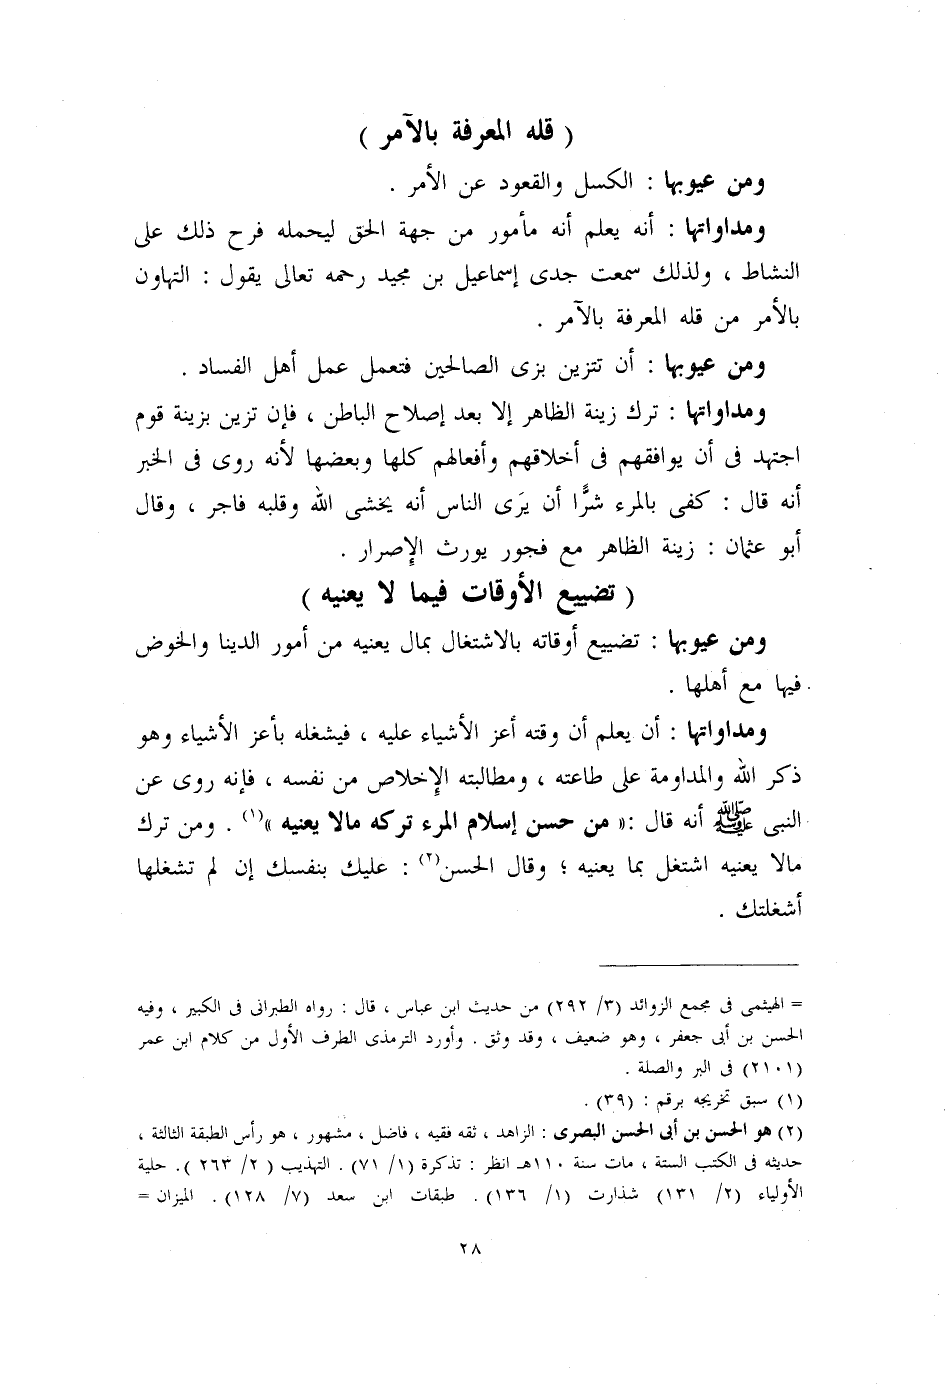 ( قله المعرفة بالآمر )
ومن عيوبها : الكسل والقعود عن الأمر .
ومداواتها : أنه يعلم أنه مأمور من جهة الحق ليحمله فرح ذلك على
النشاط ، ولذلك سمعت جدى إسماعيل بن مجيد رحمه تعالى يقول : التهاون
بالأمر من قله المعرفة بالآمر .
ومن عيوبها : أن تتزين بزى الصالحين فتعمل عمل أهل الفساد .
ومداواتها : ترك زينة الظاهر إلا بعد إصلاح الباطن ، فإن تزين بزينة قوم
اجتهد فى أن يوافقهم فى أخلاقهم وأفعالهم كلها وبعضها لأنه روى فى الخبر
أنه قال : كفى بالمرء شرًّا أن يَرَى الناس أنه يخشى الله وقلبه فاجر ، وقال
أبو عثمان : زينة الظاهر مع فجور يورث الإصرار .
( تضييع الأوقات فيما لا يعنيه )
ومن عيوبها : تضييع أوقاته بالاشتغال بمال يعنيه من أمور الدينا والخوض
فيها مع أهلها .
ومداواتها : أن يعلم أن وقته أعز الأشياء عليه ، فيشغله بأعز الأشياء وهو
ذكر الله والمداومة على طاعته ، ومطالبته الإخلاص من نفسه ، فإنه روى عن
النبى ﷺ أنه قال :« من حسن إسلام المرء تركه مالا يعنيه »(١) . ومن ترك
مالا يعنيه اشتغل بما يعنيه ؛ وقال الحسن(٢) : عليك بنفسك إن لم تشغلها
أشغلتك .
= الهيثمى فى مجمع الزوائد (٣/ ٢٩٢) من حديث ابن عباس ، قال : رواه الطبرانى فى الكبير ، وفيه
الحسن بن أبى جعفر ، وهو ضعيف ، وقد وثق . وأورد الترمذى الطرف الأول من كلام ابن عمر
(٢١٠١) فى البر والصلة .
(١) سبق تخريجه برقم : (٣٩) .
(٢) هو الحسن بن أبى الحسن البصرى : الزاهد ، ثقه فقيه ، فاضل ، مشهور ، هو رأس الطبقة الثالثة ،
حديثه فى الكتب الستة ، مات سنة ١١٠هـ انظر : تذكرة (١/ ٧١) . التهذيب ( ٢/ ٢٦٣ ). حلية
الأولياء (٢/ ١٣١) شذارت (١/ ١٣٦) . طبقات ابن سعد (٧/ ١٢٨) . الميزان =
٢٨